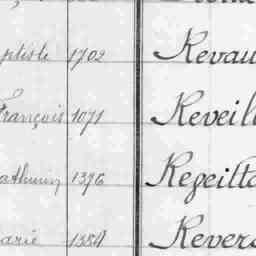 ptiste 1702 Revau
François 1071 Reveill
athurin 1376 Rezeilla
arie 1384 Revers